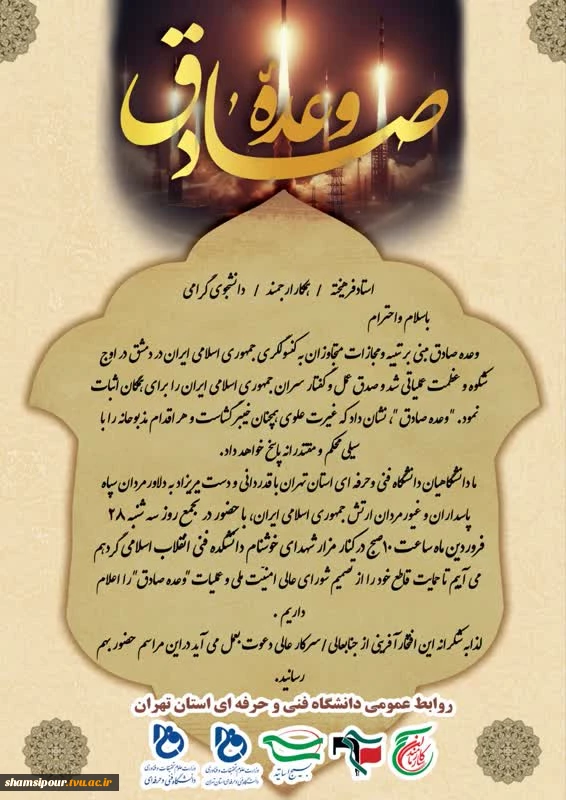 وعده صادق
استاد فرهیخته / همکار ارجمند / دانشجوی گرامی
باسلام و احترام
وعده صادق مبنی بر تنبیه و مجازات متجاوزان به کنسولگری جمهوری اسلامی ایران در دمشق در اوج
شکوه و عظمت عملیاتی شد و صدق عمل و گفتار سران جمهوری اسلامی ایران را برای همگان اثبات
نمود. "وعده صادق"، نشان داد که غیرت علوی همچنان خیبرگشاست و هر اقدام مذبوحانه را با
سیلی محکم و مقتدرانه پاسخ خواهد داد.
ما دانشگاهیان دانشگاه فنی و حرفه ای استان تهران با قدردانی و دست مریزاد به دلاورمردان سپاه
پاسداران و غیورمردان ارتش جمهوری اسلامی ایران، با حضور در تجمع روز سه شنبه ۲۸
فروردین ماه ساعت ۱۰صبح در کنار مزار شهدای خوشنام دانشکده فنی انقلاب اسلامی گردهم
می آییم تا حمایت قاطع خود را از تصمیم شورای عالی امنیت ملی و عملیات "وعده صادق" را اعلام
داریم .
لذا به شکرانه این افتخارآفرینی از جنابعالی / سرکار عالی دعوت بعمل می آید در این مراسم حضور بهم
رسانید.
روابط عمومی دانشگاه فنی و حرفه ای استان تهران
وزارت علوم تحقیقات و فناوری
دانشگاه فنی و حرفه ای
وزارت علوم تحقیقات و فناوری
دانشگاه فنی و حرفه ای استان تهران
بسیج اساتید
کارمندان
shamsipour.tvu.ac.ir